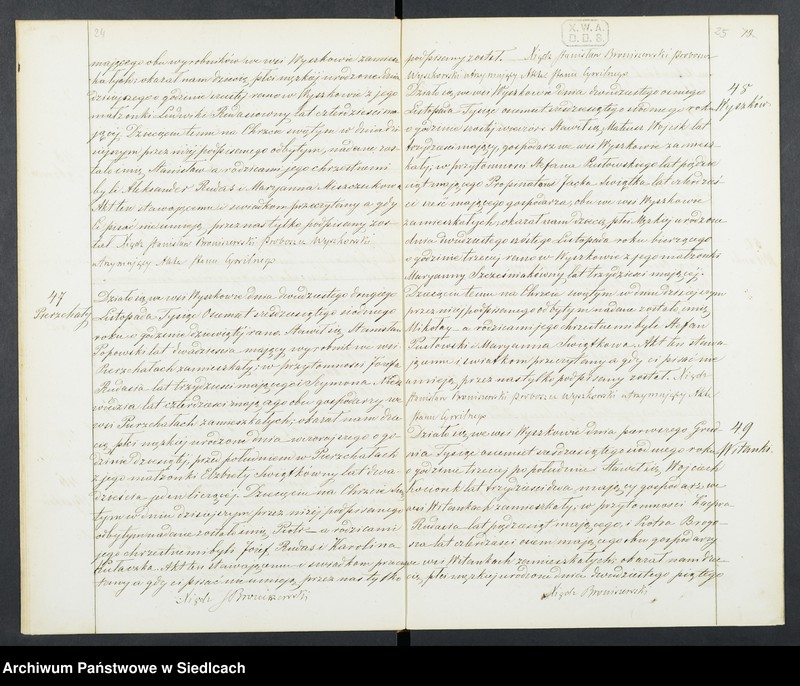 24
mającego obu wyrobników we wsi Wyszkowie zamiesz-
kałych; okazał nam dziecię płci męzkiej urodzone dnia
dzisiejszego o godzinie szóstej rano w Wyszkowie z jego
małżonki Ludwiki lat czterdzieści ma-
jącej. Dziecięciu temu na Chrzcie świętym w dniu dzi-
siejszym przez niżej podpisanego odbytym, nadane zos-
tało imie Stanisław a rodzicami jego chrzestnemi
byli Aleksander Rudaś i Maryanna
Akt ten stawającemu i świadkom przeczytany a gdy
Ci pisać nie umieją, przez nas tylko podpisany zos-
tał Xiądz Stanisław Broniszewski Proboszcz Wyszkowski
utrzymujący Akta Stanu Cywilnego
47
Pierzchały
Działo się we wsi Wyszkowie dnia dwudziestego drugiego
Listopada Tysiąc Osiemset sześćdziesiątego siódmego
roku o godzinie dziewiątej rano. Stawił się Stanisław
Popowski lat dwadzieścia mający, wyrobnik we wsi
Pierzchałach zamieszkały; w przytomności Józefa
Rudasia lat trzydzieści mającego i Szymona Niedź-
wiedzia lat czterdzieści mającego obu gospodarzy we
wsi Pierzchałach zamieszkałych; okazał nam dzie-
cię płci męzkiej urodzone dnia wczorajszego o go-
dzinie dziesiątej przed południem w Pierzchałach
z jego małżonki Elżbiety Świątkówny lat dwa-
dzieścia jeden liczącej. Dziecięciu na Chrzcie Świę-
tym w dniu dzisiejszym przez niżej podpisanego
odbytym nadane zostało imie Piotr a rodzicami
jego chrzestnemi byli Józef Rudaś i Karolina
Akt ten stawającemu i świadkom przeczy-
tany a gdy ci pisać nie umieją, przez nas tylko
Xiądz SBroniszewski
X.W.A.
D.D.S.
25 13.
podpisany został. Xiądz Stanisław Broniszewski Proboszcz
Wyszkowski utrzymujący Akta Stanu Cywilnego
48
Wyszków
Działo się we wsi Wyszkowie dnia dwudziestego ósmego
Listopada Tysiąc osiemset sześćdziesiątego siódmego roku
o godzinie szóstej wieczór. Stawił się Mateusz Wójcik lat
trzydzieści mający, gospodarz we wsi Wyszkowie zamiesz-
kały; w przytomności Stefana Pustowskiego lat pięćdzie-
siąt mającego Propinatora Jacka Świątka lat czterdzieś-
ci sześć mającego gospodarza, obu we wsi Wyszkowie
zamieszkałych; okazał nam dziecię płci Męzkiej urodzone
dnia dwudziestego szóstego Listopada roku bieżącego
o godzinie trzeciej rano w Wyszkowie z jego małżonki
Maryanny Szcześniakówny lat trzydzieści mającej.
Dziecięciu temu na Chrzcie świętym w dniu dzisiejszym
przez niżej podpisanego odbytym nadane zostało imie
Mikołaj a rodzicami jego chrzestnemi byli Stefan
Pustowski i Maryanna Świątkowa. Akt ten stawa-
jącemu i świadkom przeczytany a gdy ci pisać nie
umieją, przez nas tylko podpisany został. Xiądz
Stanisław Broniszewski Proboszcz Wyszkowski utrzymujący Akta
Stanu Cywilnego
49
Witanki.
Działo się we wsi Wyszkowie dnia pierwszego Grud-
nia Tysiąc osiemset sześćdziesiątego siódmego roku
o godzinie trzeciej po południu. Stawił się Wojciech
lat trzydzieści dwa mający gospodarz we
wsi Witankach zamieszkały, w przytomności Kacpra
Rudasia lat pięćdziesiąt mającego i Piotra
lat czterdzieści osiem mającego obu gospodarzy
we wsi Witankach zamieszkałych; okazał nam dzie-
cię płci męzkiej urodzone dnia dwudziestego piątego
Xiądz Broniszewski
Archiwum Państwowe w Siedlcach